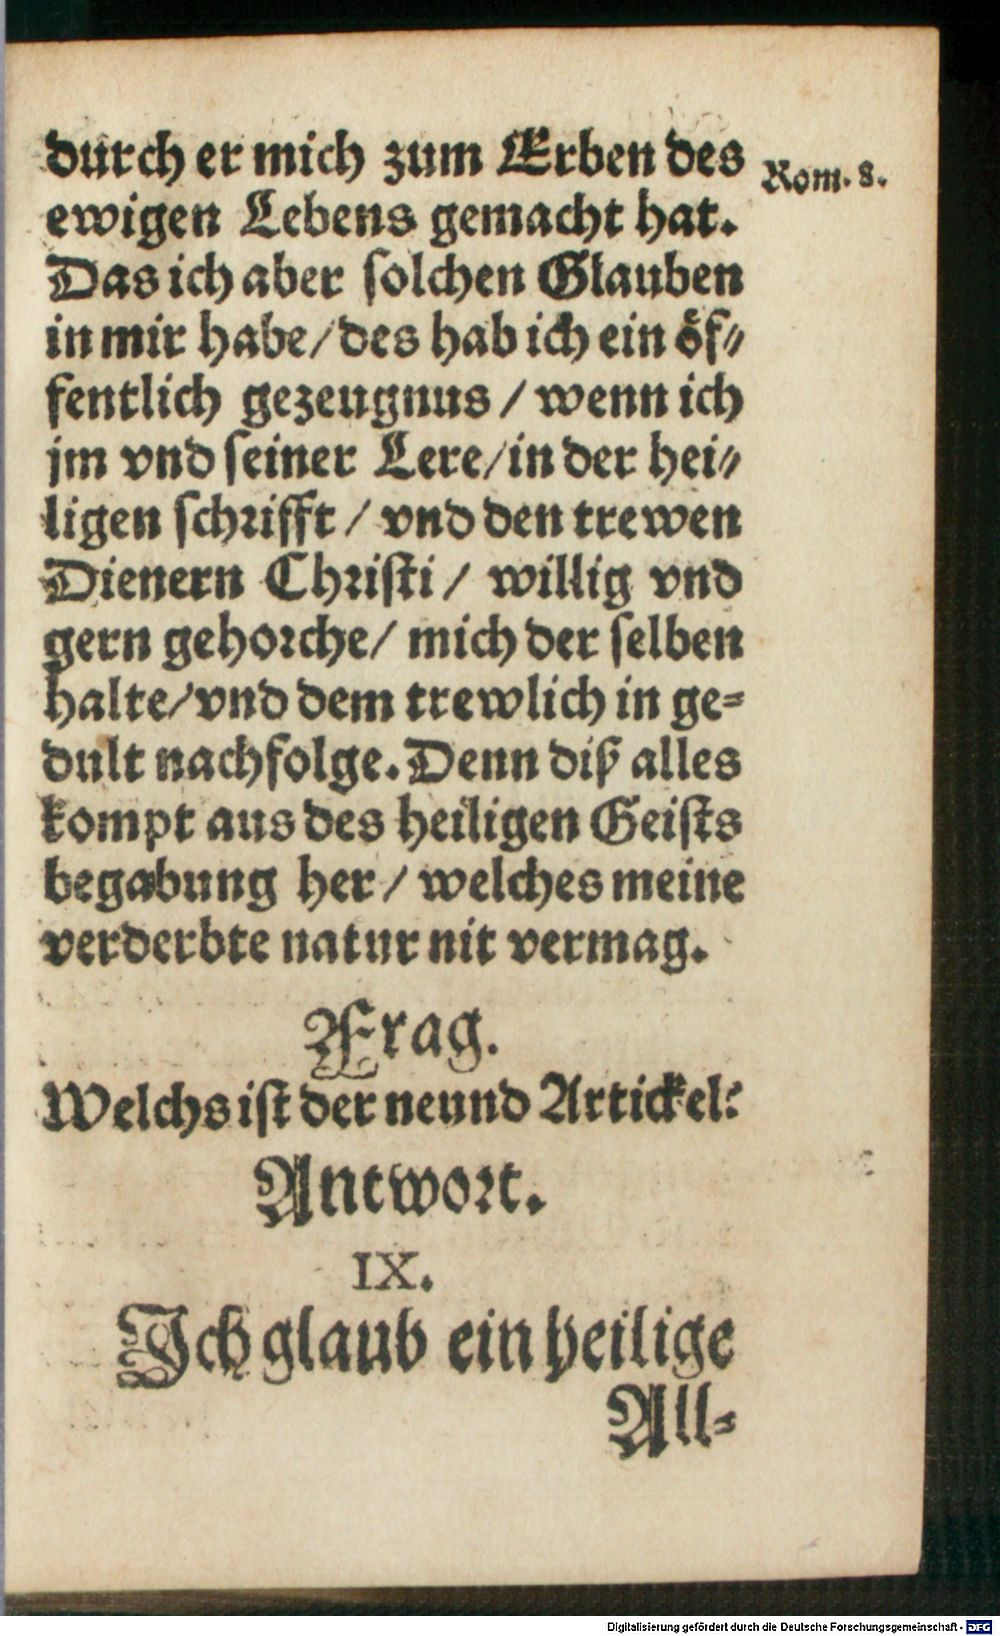 durch er mich zum Erben des
Rom. 8.
ewigen Lebens gemacht hat.
Das ich aber solchen Glauben
in mir habe/des hab ich ein öf⸗
fentlich gezeugnus / wenn ich
jm vnd seiner Lere/in der hei⸗
ligen schrifft / vnd den trewen
Dienern Christi / willig vnd
gern gehorche/ mich der selben
halte/vnd dem trewlich in ge⸗
dult nachfolge. Denn diß alles
kompt aus des heiligen Geists
begabung her / welches meine
verderbte natur nit vermag.
Frag.
Welchs ist der neund Artickel?
Antwort.
IX.
Ich glaub ein heilige
All⸗
Digitalisierung gefördert durch die Deutsche Forschungsgemeinschaft - DFG